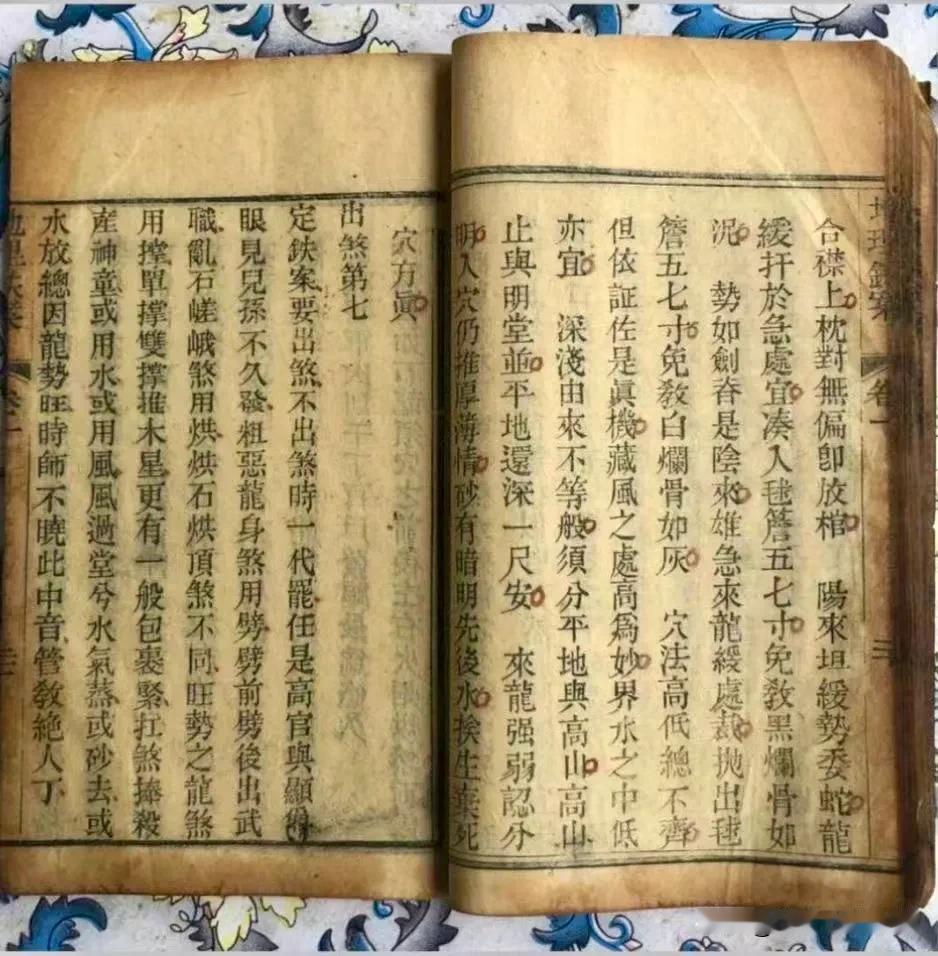 地理鉄案 卷一
合襟上枕對無偏卽放棺 陽來坦緩勢委蛇龍
緩扞於急處宜湊入毬簷五七寸免教黑爛骨如
泥 勢如劍脊是陰來雄急來龍緩處裁抛出毬
簷五七寸免教白爛骨如灰 穴法高低總不齊
但依証佐是眞機藏風之處高爲妙界水之中低
亦宜 深淺由來不等般須分平地與高山高山
止與明堂並平地還深一尺安 來龍强弱認分
明入穴仍推厚薄情砂有暗明先後水挨生棄死
穴方眞
出煞第七
定鉄案要出煞不出煞時一代罷任是高官與顯爵
眼見兒孫不久發粗惡龍身煞用劈劈前劈後出武
職亂石嵯峨煞用烘烘石烘頂煞不同旺勢之龍煞
用撑單撑雙撑推木星更有一般包裹緊扛煞捧殺
產神童或用水或用風風過堂兮水氣蒸或砂去或
水放總因龍勢旺時師不曉此中音管教絕人丁
卷一